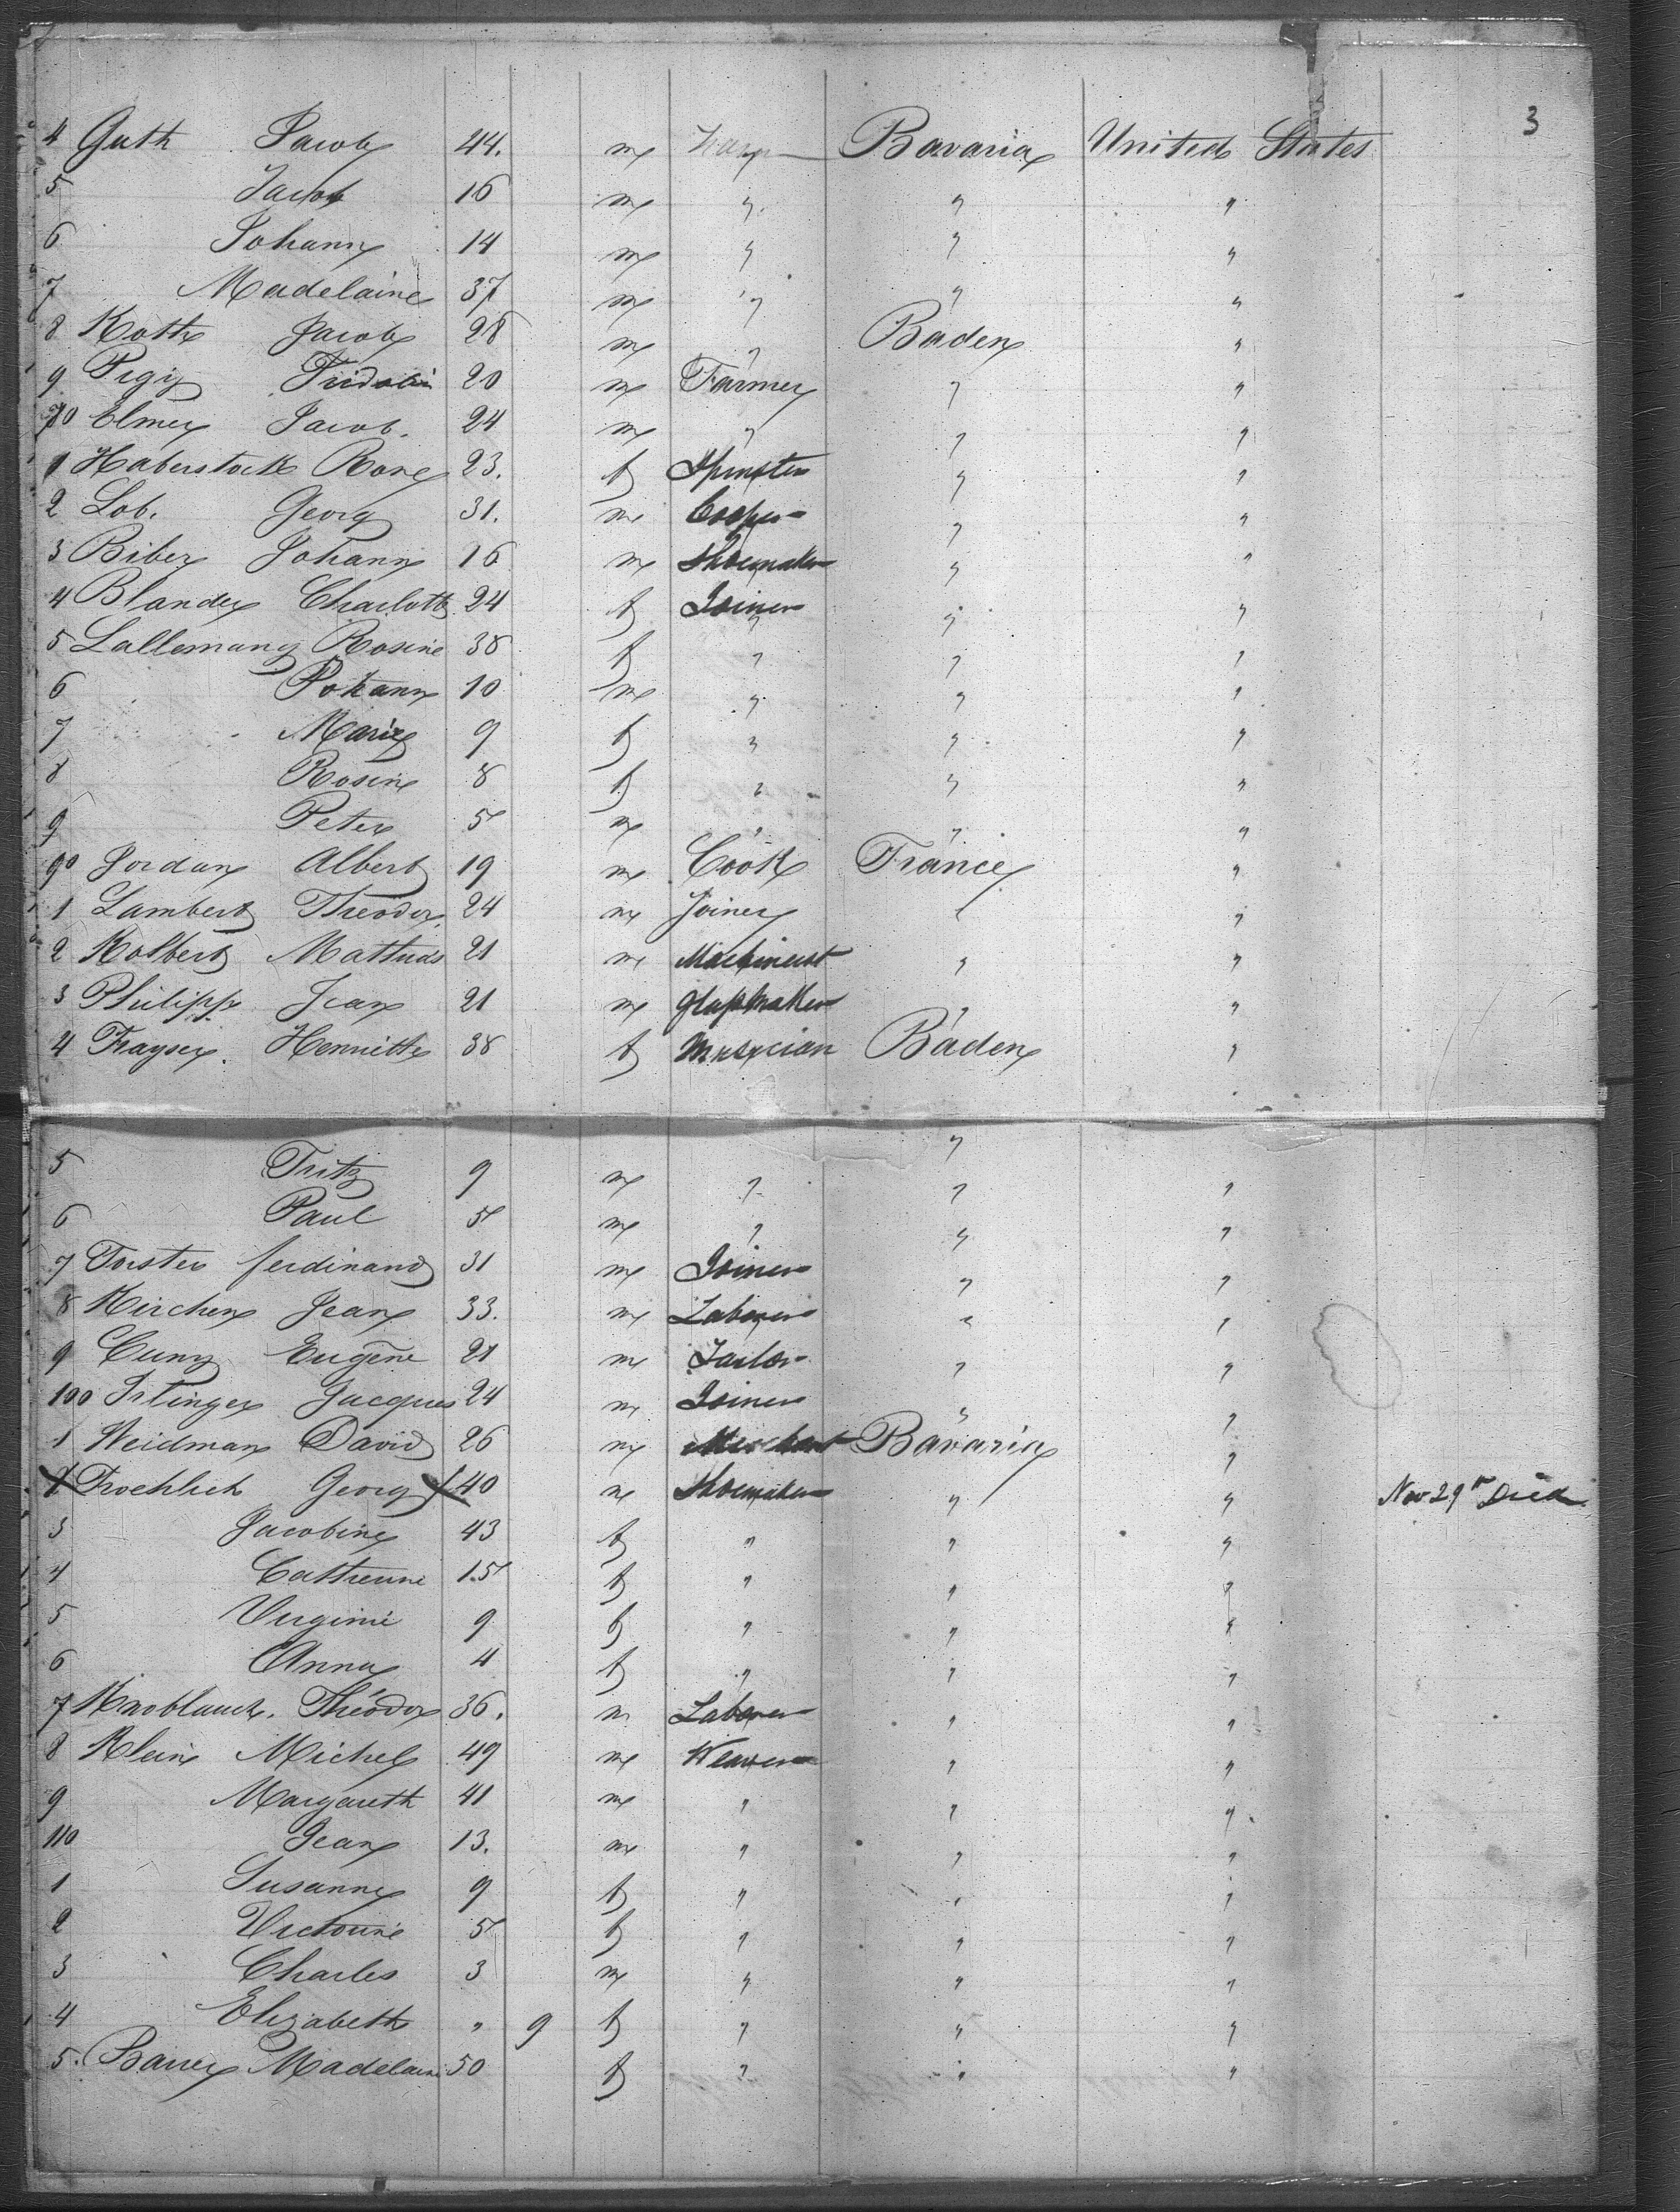 3
4 Guth Jacob 44. m Bavaria United States
5 Jacob 16 m " " "
6 Johann 14 m " " "
7 Madelaine 37 m " " "
8 Roth Jacob 28 m " Baden "
9 20 m Farmer " "
70 Elmer Jacob. 24 m " " "
1 Haberstock Rose 23. f Spinster " "
2 Lob. Georg 31. m Cooper " "
3 Biber Johann 16 m Shoemaker " "
4 Blander Charlotte 24 f Joiner " "
5 Lallemang Rosine 38 f " " "
6 Johann 10 m " " "
7 Marie 9 f " " "
8 Rosine 8 f " " "
9 Peter 5 m " " "
90 Jordan Albert 19 m Cook France "
1 Lambert Theodor 24 m Joiner " "
2 Kolbert 21 m Machinest " "
3 Philipp Jean 21 m Glassmaker " "
4 Frayser. Henriette 38 f Musician Baden "
"
5 Fritz 9 m " " "
6 Paul 5 m " " "
7 Forster ferdinand 31 m Joiner " "
8 Kirchen Jean 33. m Laborer " "
9 Cuny Eugène 21 m Tailor " "
100 Irlinger Jacques 24 m Joiner " "
1 Weidman David 26 m Merchant Bavaria "
2 Froehlich Georg 40 m Shoemaker " " Nov 29th Died
3 Jacobine 43 f " " "
4 Catherine 15 f " " "
5 Virginie 9 f " " "
6 Anna 4 f " " "
7 Knoblauch. Théodor 36. m Laborer " "
8 Klein Michel 49 m Weaver " "
9 Margareth 41 m " " "
110 Jean 13. m " " "
1 Susanne 9 f " " "
2 Victorine 5 f " " "
3 Charles 3 m " " "
4 Elizabeth " 9 f " " "
5. Bauer Madelaine 50 f " " "